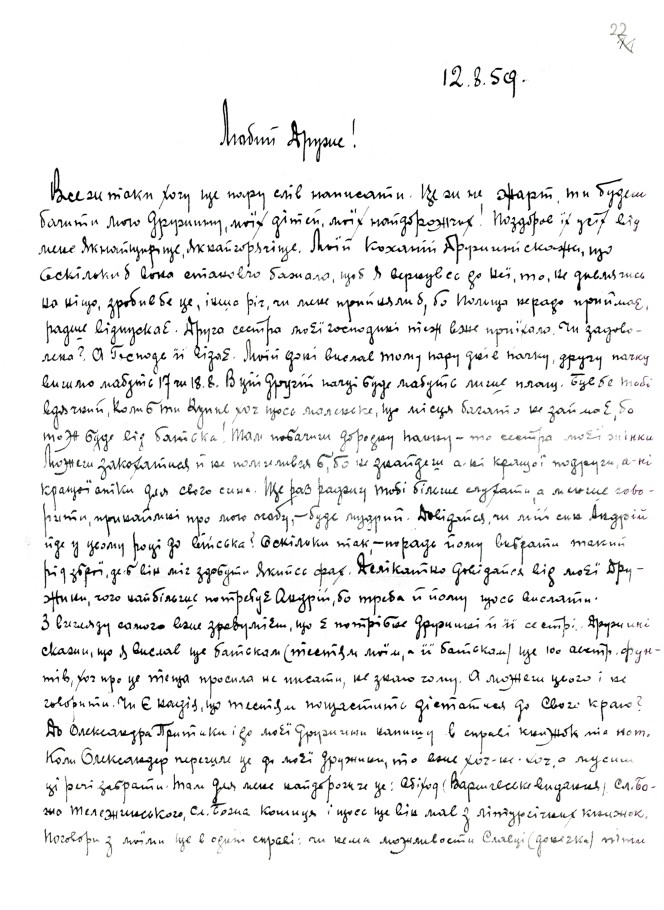 22
12.8.59.
Любий Друже!
Все ж таки хочу ще пару слів написати. Це ж не жарт, ти будеш
бачити мою Дружину, моїх дітей, моїх найдорожчих! Поздоров їх усіх від
мене якнайщиріше, якнайгарячіше. Моїй Коханій Дружині скажи, що
оскільки б вона станово бажала, щоб я вернувся до неї, то, не дивлячись
на ніщо, зробив бе це, інша річ, чи мене прийняли б, бо Польща нерадо приймає,
радше відпускає. Друга сестра моєї господині теж вже приїхала. Чи задово-
лена? А Господь її відає. Моїй доні вислав тому пару днів пачку, другу пачку
вишлю мабуть 17 чи 18.8. В цій другій пачці буде мабуть лише плащ. Був бе тобі
вдячний, коли б ти купив хоч щось маленьке, що місця багато не займає, бо
то ж буде від батька! Там побачиш дорідну панну – то сестра моєї жінки
Можеш закохатися й не помилився б, бо не знайдеш а-ні кращої подруги, а-ні
кращої опіки для свого сина. Ще раз раджу тобі більше слухати, а менше гово-
рити, принаймні про мою особу, – будь мудрий. Довідайся, чи мій син Андрій
йде у цьому році до війська? Оскільки так, – порадь йому вибрати такий
рід зброї, де б він міг здобути якийсь фах. Делікатно довідайся від моєї Дру-
жини, чого найбільше потребує Андрій, бо треба й йому щось вислати.
З вигляду самого вже зрозумієш, що є потрібне Дружині й її сестрі. Дружині
скажи, що я вислав ще батькам (тестям моїм, а її батькам) ще 100 австр. фун-
тів, хоч про це теща просила не писати, не знаю чому. А можеш цього і не
говорити. Чи є надія, що тестям пощастить дістатися до Свого краю?
До Олександра Притики і до моєї Дружини напишу в справі книжок та нот.
Коли Олександер перешле це до моєї Дружини, то вже хоч-не-хоч, а мусиш
ці речі забрати. Там для мене найдорожче це: Обіход (Варшавське видання) Сл. Бо-
жа Тележинського, Сл. Божа Кошиця і щось ще він мав з літургічних книжок.
Поговори з моїми ще в одній справі: чи нема можливости Славці (донечка) піти